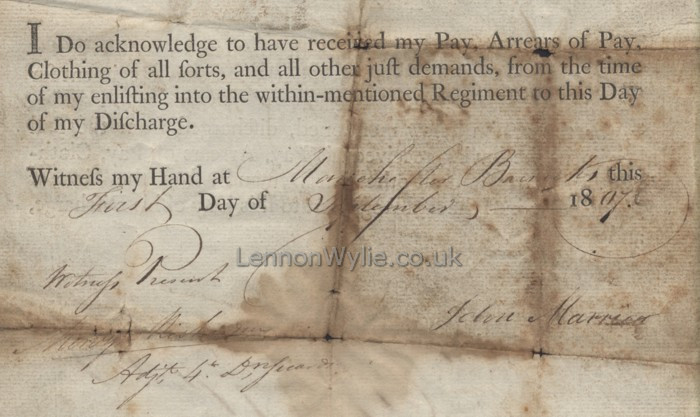 I Do acknowledge to have received my Pay, Arrears of Pay,
Clothing of all ſorts, and all other juſt demands, from the time
of my enliſting into the within-mentioned Regiment to this Day
of my Diſcharge.
Witneſs my Hand at Mancheſter Barracks this
First Day of September 1807
LennonWylie.co.uk
Witneſs Present
John
Adjt. 4th